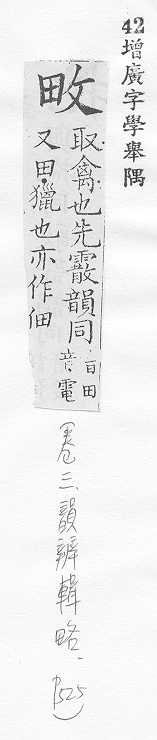 42增廣字學舉隅
畋
取禽也先霰韻同 音田 音電
又田獵也亦作佃
卷三、韻辨輯略、P525